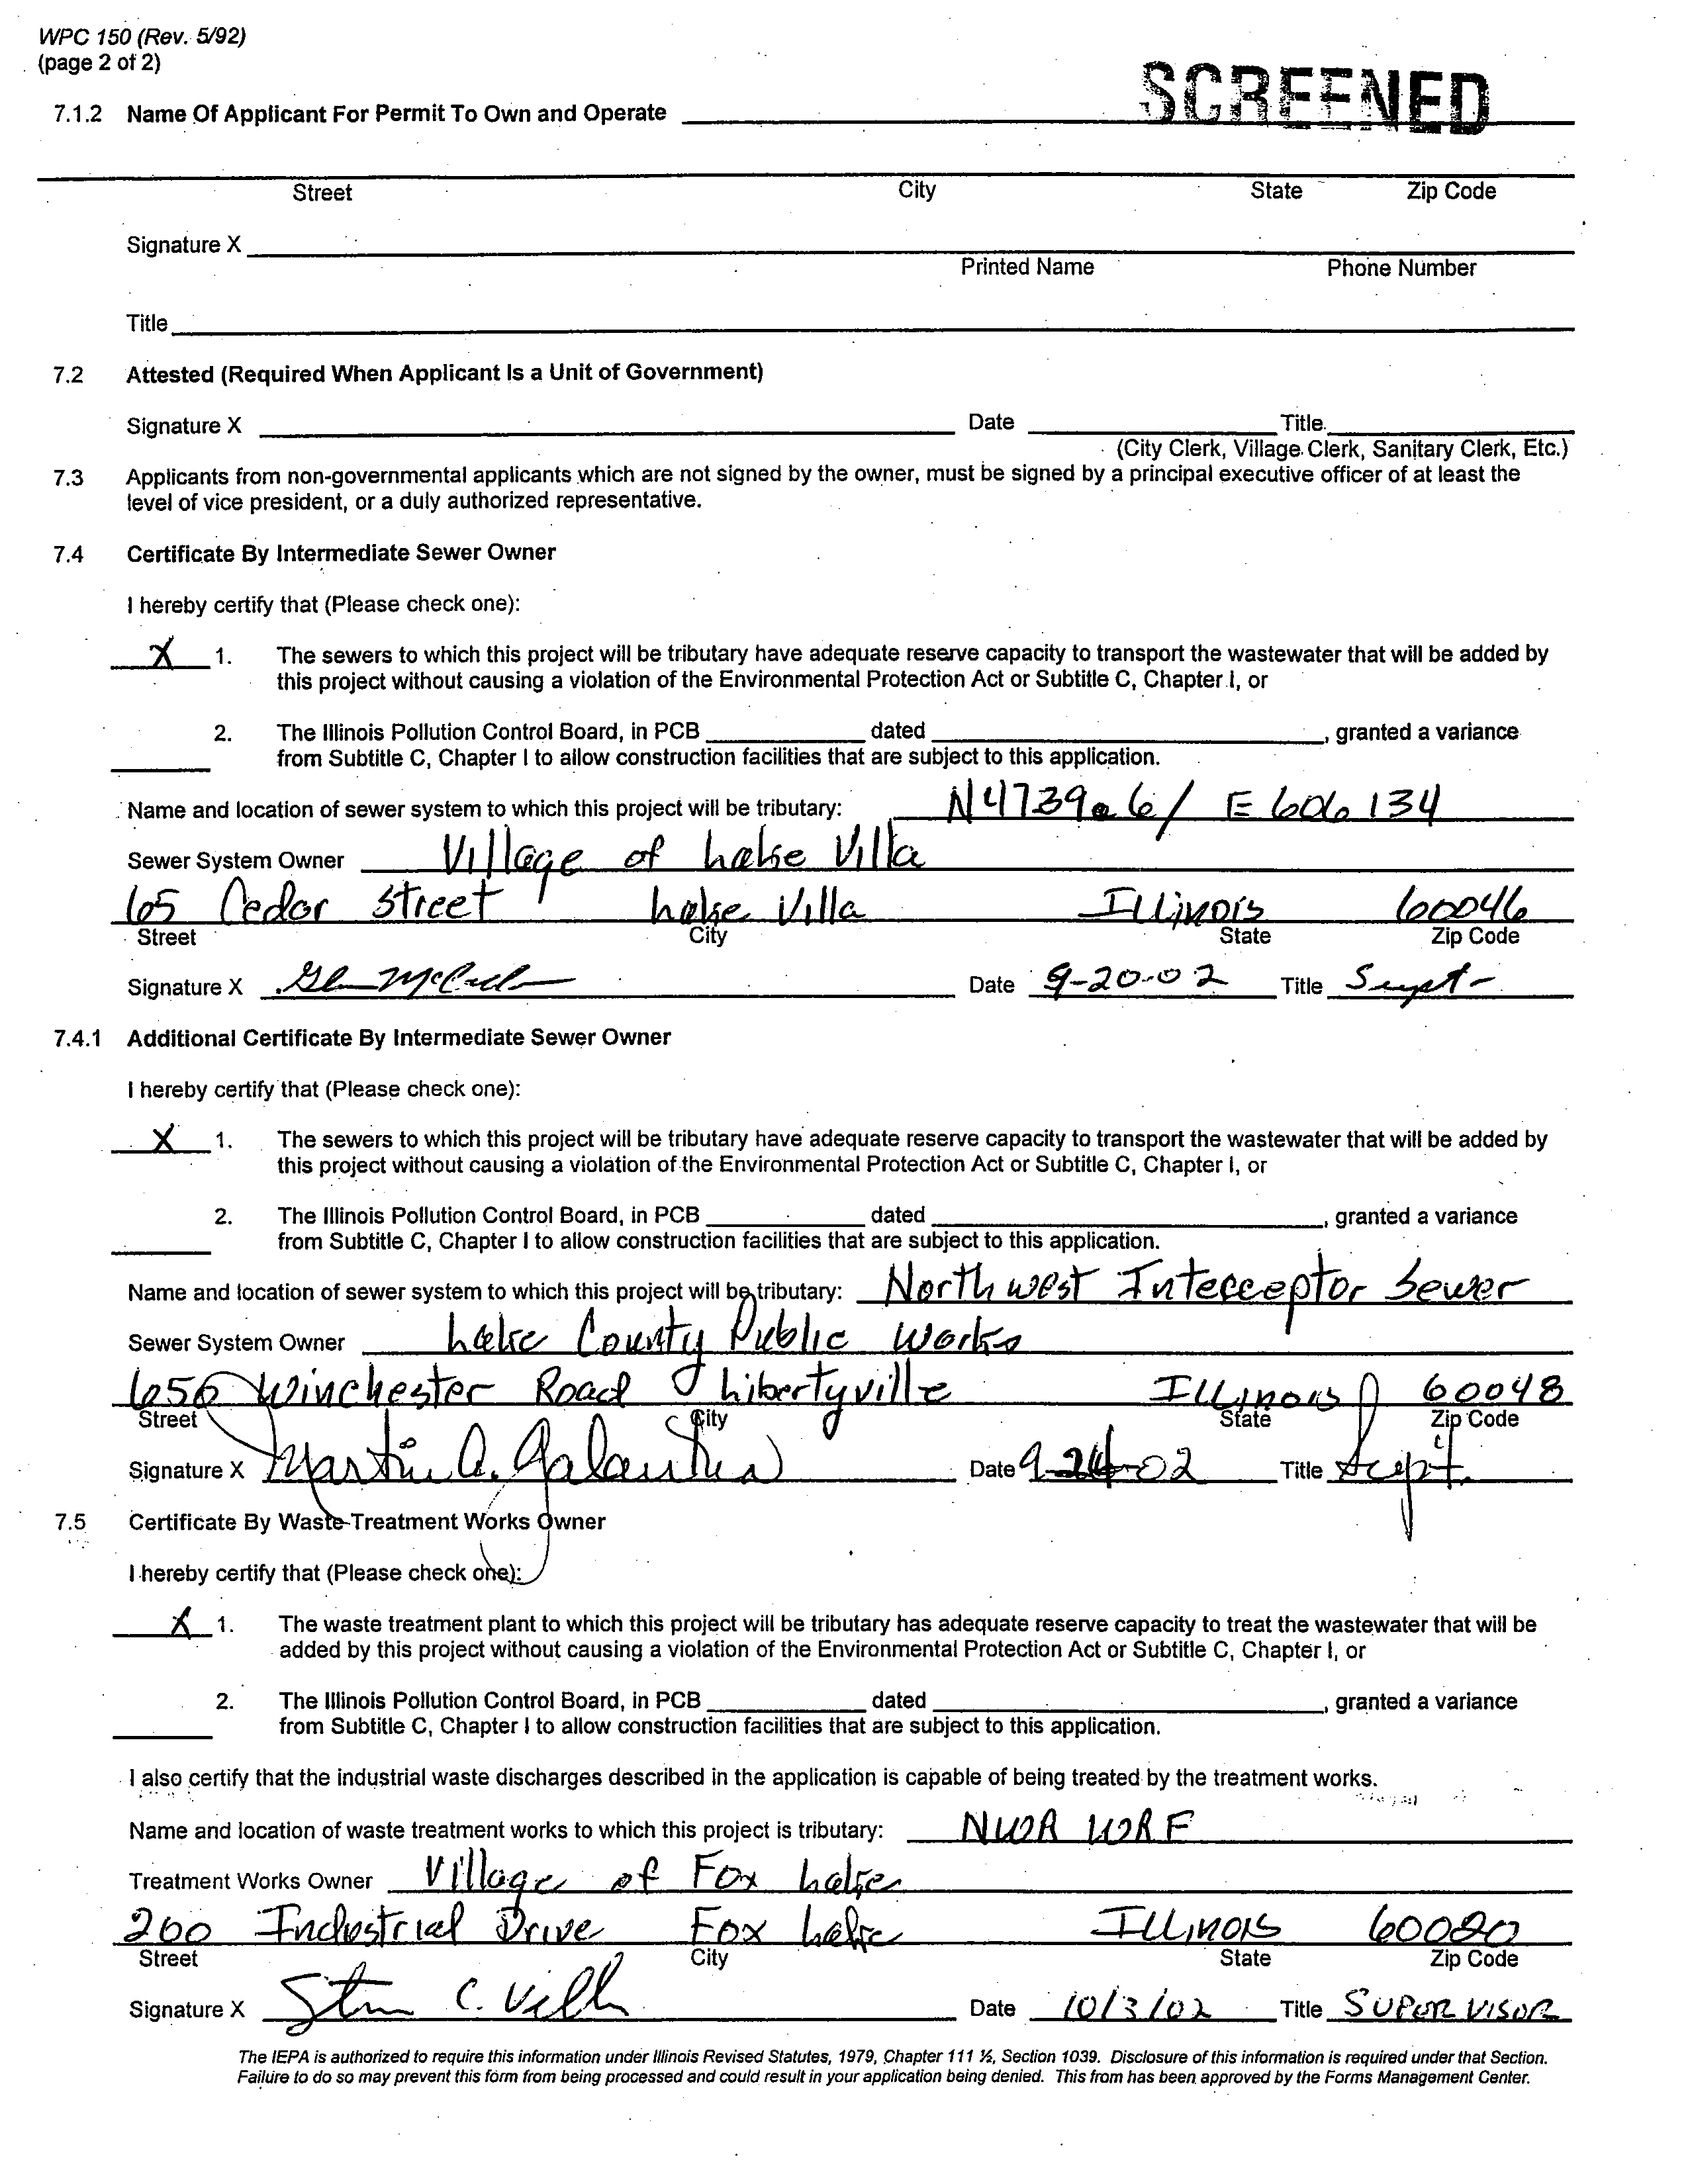 WPC 150 (Rev. 5/92)
(page 2 of 2)
SCREENED
7.1.2 Name Of Applicant For Permit To Own and Operate
Street City State Zip Code
Signature X
Printed Name Phone Number
Title
7.2 Attested (Required When Applicant Is a Unit of Government)
Signature X Date Title
(City Clerk, Village Clerk, Sanitary Clerk, Etc.)
7.3 Applicants from non-governmental applicants which are not signed by the owner, must be signed by a principal executive officer of at least the
level of vice president, or a duly authorized representative.
7.4 Certificate By Intermediate Sewer Owner
I hereby certify that (Please check one):
X 1. The sewers to which this project will be tributary have adequate reserve capacity to transport the wastewater that will be added by
this project without causing a violation of the Environmental Protection Act or Subtitle C, Chapter I, or
2. The Illinois Pollution Control Board, in PCB dated , granted a variance
from Subtitle C, Chapter I to allow construction facilities that are subject to this application.
Name and location of sewer system to which this project will be tributary: E 606134
Sewer System Owner Village of Lake Villa
65 Cedar Street Lake Villa Illinois 60046
Street City State Zip Code
Signature X Date 9-20-02 Title Supt-
7.4.1 Additional Certificate By Intermediate Sewer Owner
I hereby certify that (Please check one):
X 1. The sewers to which this project will be tributary have adequate reserve capacity to transport the wastewater that will be added by
this project without causing a violation of the Environmental Protection Act or Subtitle C, Chapter I, or
2. The Illinois Pollution Control Board, in PCB dated , granted a variance
from Subtitle C, Chapter I to allow construction facilities that are subject to this application.
Name and location of sewer system to which this project will be tributary: Northwest Interceptor Sewer
Sewer System Owner Lake County Public Works
650 Winchester Road Libertyville Illinois 60048
Street City State Zip Code
Signature X Martin A. Date Title Supt.
7.5 Certificate By Waste Treatment Works Owner
I hereby certify that (Please check one):
X 1. The waste treatment plant to which this project will be tributary has adequate reserve capacity to treat the wastewater that will be
added by this project without causing a violation of the Environmental Protection Act or Subtitle C, Chapter I, or
2. The Illinois Pollution Control Board, in PCB dated , granted a variance
from Subtitle C, Chapter I to allow construction facilities that are subject to this application.
I also certify that the industrial waste discharges described in the application is capable of being treated by the treatment works.
Name and location of waste treatment works to which this project is tributary: NWR WRF
Treatment Works Owner Village of Fox Lake
200 Industrial Drive Fox Lake Illinois 60020
Street City State Zip Code
Signature X C. Date 10/3/02 Title SUPERVISOR
The IEPA is authorized to require this information under Illinois Revised Statutes, 1979, Chapter 111 ½, Section 1039. Disclosure of this information is required under that Section.
Failure to do so may prevent this form from being processed and could result in your application being denied. This from has been approved by the Forms Management Center.